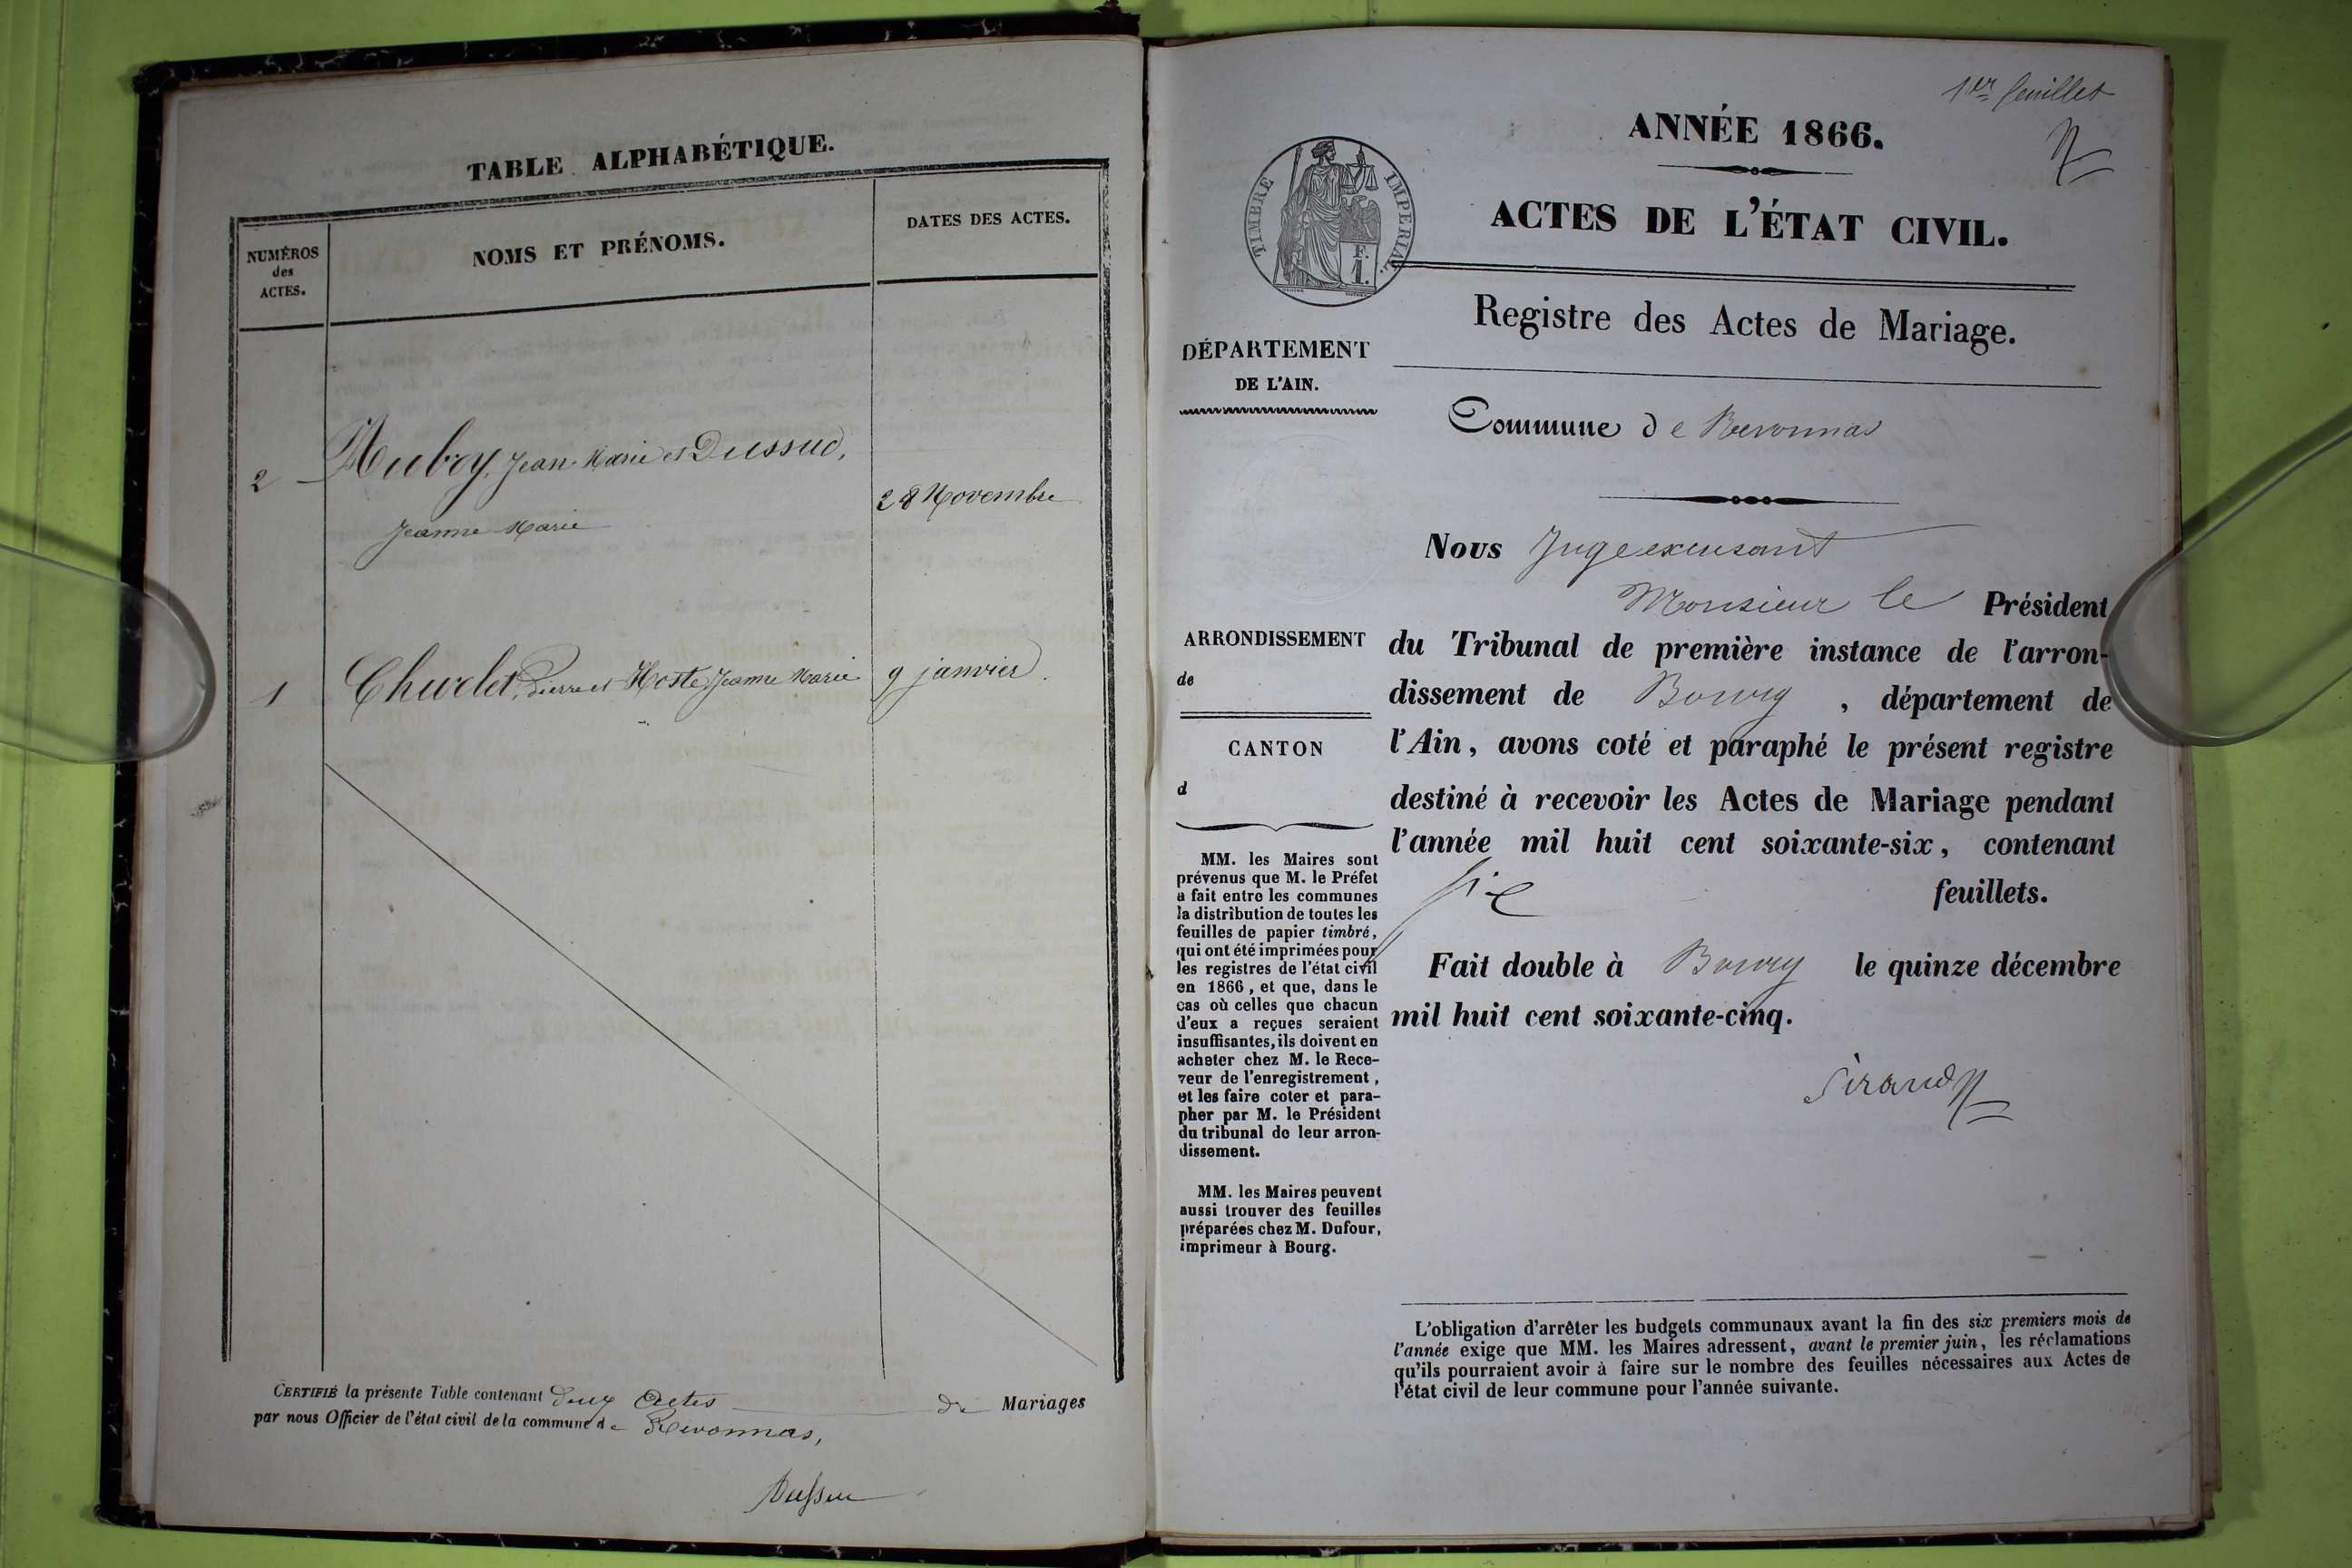 TABLE ALPHABÉTIQUE.
NUMÉROS
des
ACTES.
NOMS ET PRÉNOMS.
DATES DES ACTES.
2 Aubry, Jean Marie et Dussud,
Jeanne Marie
28 Novembre
1 Chevelet, Pierre et Hoste Jeanne Marie 9 janvier.
CERTIFIÉ la présente Table contenant deux Actes de Mariages
par nous Officier de l'état civil de la commune de Revonnas,
1er feuillet
ANNÉE 1866.
TIMBRE IMPÉRIAL.
F.
1.
ACTES DE L'ÉTAT CIVIL.
Registre des Actes de Mariage.
DÉPARTEMENT
DE L'AIN.
Commune de Revonnas
Nous Juge excusant
Monsieur le Président
ARRONDISSEMENT
de
CANTON
d
du Tribunal de première instance de l'arron-
dissement de Bourg, département de
l'Ain, avons coté et paraphé le présent registre
destiné à recevoir les Actes de Mariage pendant
l'année mil huit cent soixante-six, contenant
six feuillets.
Fait double à Bourg le quinze décembre
mil huit cent soixante-cinq.
Sirand
MM. les Maires sont
prévenus que M. le Préfet
a fait entre les communes
la distribution de toutes les
feuilles de papier timbré,
qui ont été imprimées pour
les registres de l'état civil
en 1866, et que, dans le
cas où celles que chacun
d'eux a reçues seraient
insuffisantes, ils doivent en
acheter chez M. le Rece-
veur de l'enregistrement,
et les faire coter et para-
pher par M. le Président
du tribunal de leur arron-
dissement.
MM. les Maires peuvent
aussi trouver des feuilles
préparées chez M. Dufour,
imprimeur à Bourg.
L'obligation d'arrêter les budgets communaux avant la fin des six premiers mois de
l'année exige que MM. les Maires adressent, avant le premier juin, les réclamations
qu'ils pourraient avoir à faire sur le nombre des feuilles nécessaires aux Actes de
l'état civil de leur commune pour l'année suivante.